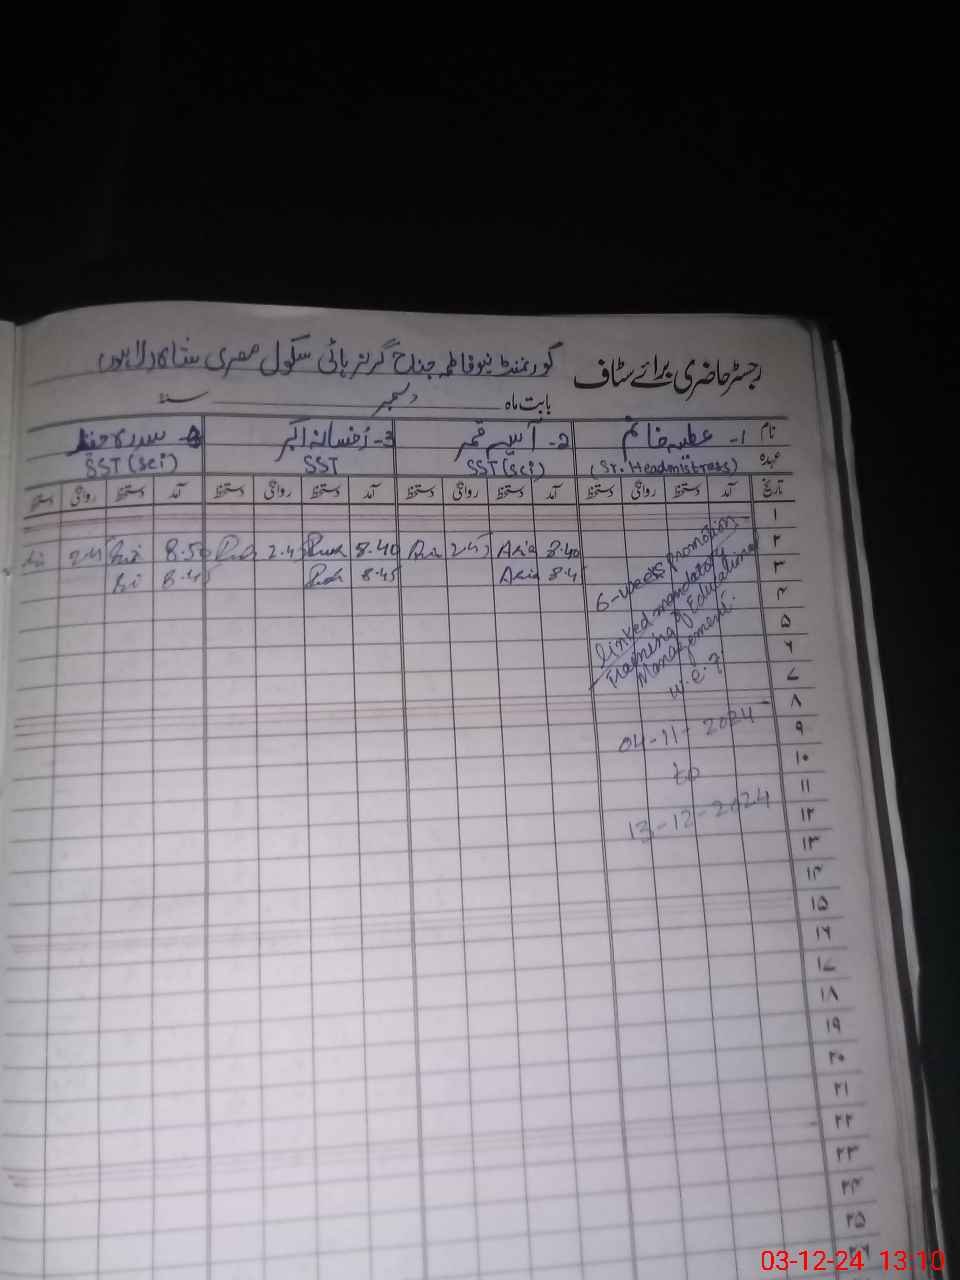 رجسٹر حاضری برائے سٹاف گورنمنٹ نیو فاطمہ جناح گرلز ہائی سکول مصری شاہ (لاہور)
بابت ماہ دسمبر سنہ
نام 1- عطیہ خانم 2- آسیہ قمر 3- رخسانہ اکبر سدرہ
عہدہ (Sr. Headmistress) SST (Sci) SST SST (Sci)
تاریخ آمد دستخط روانگی دستخط آمد دستخط روانگی دستخط آمد دستخط روانگی دستخط آمد دستخط روانگی دستخط
۱
۲ 8.40 Asia 2.45 8.40 2.45 8.50 2.45
۳ 8.45 Asia 8.45 8.45
۴
۵
۶
۷
۸
۹
۱۰
۱۱
۱۲
۱۳
۱۴
۱۵
۱۶
۱۷
۱۸
۱۹
۲۰
۲۱
۲۲
۲۳
۲۴
۲۵
۲۶
6-weeks promotion
linked mandatory
Training of Educational
Management.
w.e.f
04-11-2024
to
13-12-2024
03-12-24 13:10